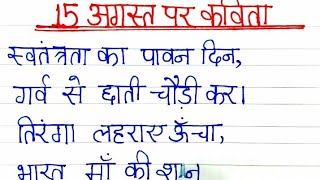 15 अगस्त पर कविता
स्वतंत्रता का पावन दिन,
गर्व से छाती चौड़ी कर।
तिरंगा लहराए ऊँचा,
भारत माँ की शान